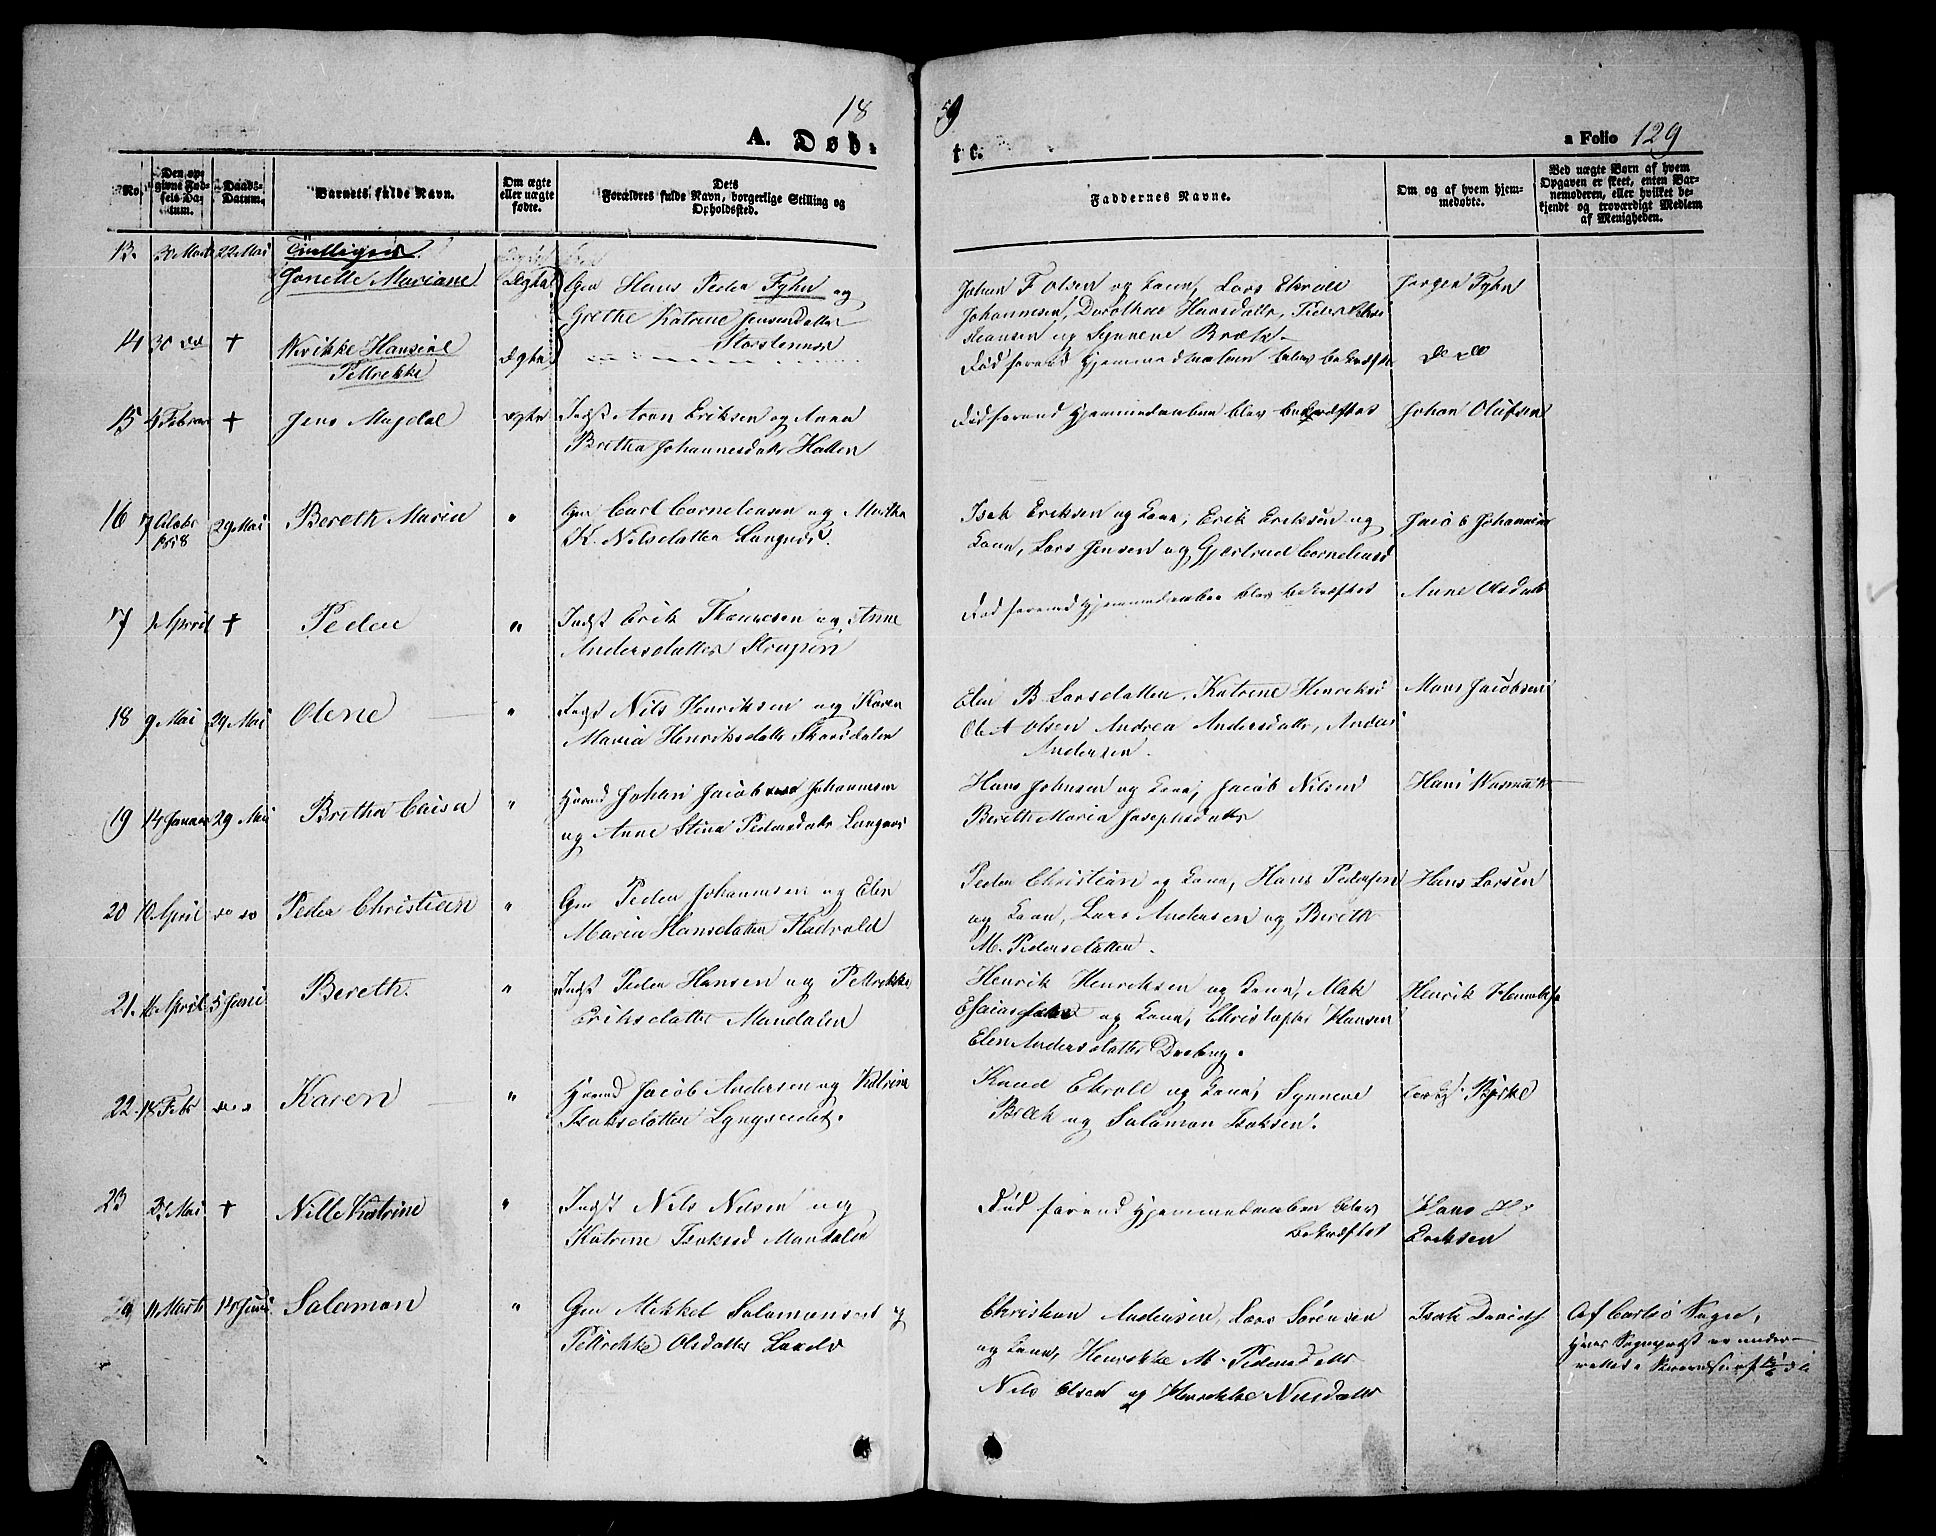 1859
A. Døbte.
a Folio 129
No.
Den opgivne Fødsels Datum.
Daabs-Datum.
Barnets fulde Navn.
Om ægte eller uægte fødte.
Dets Forældres fulde Navn, borgerlige Stilling og Opholdssted.
Faddernes Navne.
Om og af hvem hjemmedøbte.
Ved uægte Børn af hvem Opgaven er skeet, enten Barnemoderen, eller hvilket bekjendt og troværdigt Medlem af Menigheden.
13. 30 Marts 22 Mai Tvillinger
Jonette Mariane Ægte Gm Hans Peder Fyhn og
Grethe Katrine Jensdatter
Storstennes
Johan F Olsen og Kone, Lars Ekrole
Johannesen, Dorothea Hansdatter, Peder
og Synneve Bræk
Jørgen Fyhn
14 30 do † Hansine
Petrikke Ægte
Død forend Hjemmedaaben blev bekræftet do do
15 4 Februar † Jens Magdal ægte Indst Aron Eriksen og Anna
Bretha Johannesdatter Hatten
Død forend Hjemmedaaben blev bekræftet Johan Olufsen
16 7 Octobr 1858 29 Mai Bereth Maria " Gm Carl Corneliusen og Martha
K. Nilsdatter Langnes.
Isak Eriksen og Kone, Erik Eriksen og
Kone, Lars Jensen og Gjertrud Corneliusd
Jacob Johannesen
17 1 April † Peder " Indst Erik Thomesen og Anne
Andersdatter Strupen
Død forend Hjemmedaaben blev bekræftet Anne Olsdatter
18 9 Mai 29 Mai Olene " Indst Nils Henriksen og Karen
Maria Henriksdatter Skarsdalen
Elen B Larsdatter, Katrine Henriksd
Ole A Olsen Andrea Andersdatter, Anders
Andersen.
Mons Jacobsen
19 14 Januar 29 Mai Bretha Caisa " Huusmd Johan Jacob Johannesen
og Anne Stina Pedersdatter Langnes
Hans Johnsen og Kone, Jacob Nilsen
Bereth Maria Josephsdatter
Hans
20 10 April do do Peder Christian " Gm Peder Johannesen og Elen
Maria Hansdatter Fladvold
Peder Christian og Kone, Hans Pedersen
og Kone, Lars Andersen og Bereth
M. Pedersdatter.
Hans Larsen
21. 16 April 5 Juni Bereth. " Indst Peder Hansen og Petrikke
Eriksdatter Mandalen
Henrik Henriksen og Kone, Mak
Esaiassen og Kone, Christopher Hansen
Elen Andersdatter
Henrik Henriksen
22. 18 Febr do do Karen " Huusmd Jacob Andersen og Katrine
Isaksdatter Lyngseidet.
Knud Ekroll og Kone, Synneve
Bræk og Salamon Isaksen.
Bjerke
23 Mai † Nille Katrine " Indst Nils Nilsen og
Katrine Isaksd Mandalen
Død forend Hjemmedaaben blev
bekræftet
Hans H
Eriksen
24 11 Marts 14 Juni Salamon " Gm Mikkel Salamonsen og
Petrikke Olsdatter
Christian Andersen, Lars Sørensen
og Kone, Henrikke M. Pedersdatter
Nils Olsen og Henrikke Nilsdatter
Isak Davids
Af Carlsø Sogn,
Hvis Sognepræst er under-
rettet